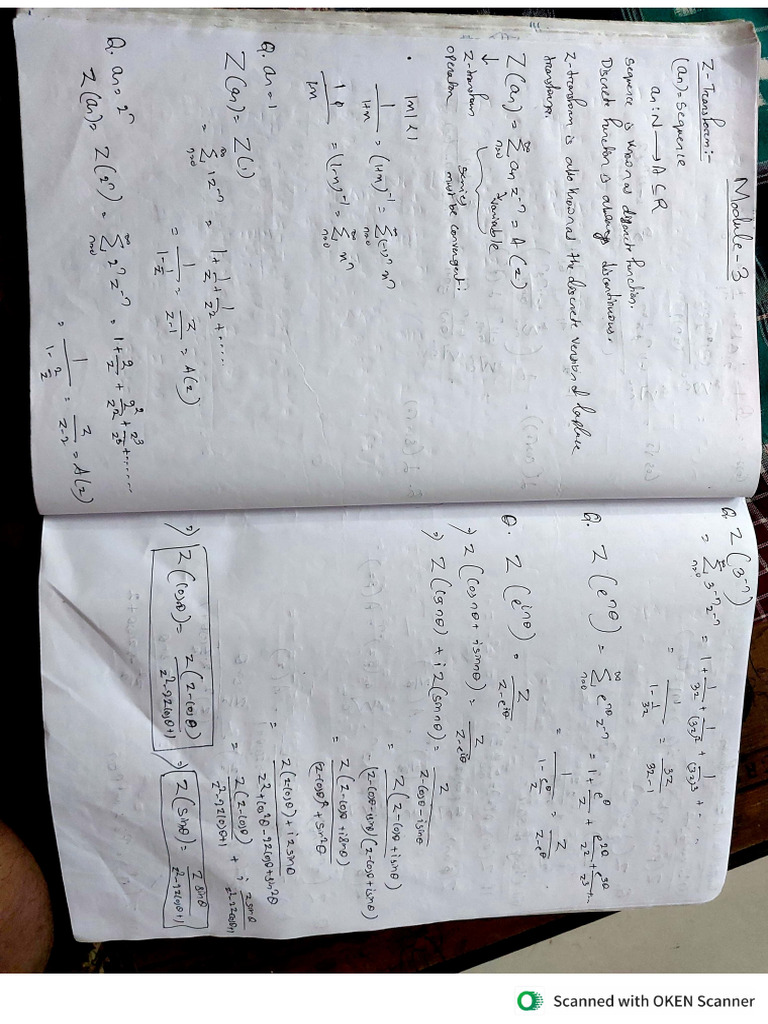 Module-3
Z-Transform:-
(an) = sequence
an: N → A ⊆ R
sequence is known as discrete function.
Discrete function is always discontinuous.
Z-transform is also known as the discrete version of laplace
transforms.
Z(an) = ∞Σn=0 an z^-n = A(z)
↓ variable
Z-transform series
operation must be convergent.
• |n| < 1
1/(1+n) = (1+n)^-1 = ∞Σn=0 (-1)^n n^n
1/(1-n) = (1-n)^-1 = ∞Σn=0 n^n
Q. an = 1
Z(an) = Z(1)
= ∞Σn=0 1 z^-n = 1 + 1/z + 1/z^2 + ......
= 1/(1 - 1/z) = z/(z-1) = A(z)
Q. an = 2^n
Z(an) = Z(2^n) = ∞Σn=0 2^n z^-n = 1 + 2/z + 2^2/z^2 + 2^3/z^3 + ......
= 1/(1 - 2/z) = z/(z-2) = A(z)
Q. Z(3^-n)
= ∞Σn=0 3^-n z^-n = 1 + 1/3z + 1/(3z)^2 + 1/(3z)^3 + ...
= 1/(1 - 1/3z) = 3z/(3z-1)
Q. Z(e^nθ) = ∞Σn=0 e^nθ z^-n = 1 + e^θ/z + e^2θ/z^2 + e^3θ/z^3 + ...
= 1/(1 - e^θ/z) = z/(z-e^θ)
Q. Z(e^inθ) = z/(z-e^iθ)
⇒ Z(cosnθ + isinnθ) = z/(z-e^iθ)
⇒ Z(cosnθ) + iZ(sinnθ) = z/(z-cosθ-isinθ)
= z(z-cosθ+isinθ)/(z-cosθ-isinθ)(z-cosθ+isinθ)
= z(z-cosθ+isinθ)/((z-cosθ)^2+sin^2θ)
= z(z-cosθ)+izsinθ/(z^2+cos^2θ-2zcosθ+sin^2θ)
= z(z-cosθ)/(z^2-2zcosθ+1) + i zsinθ/(z^2-2zcosθ+1)
⇒ Z(cosθ) = z(z-cosθ)/(z^2-2zcosθ+1) ⇒ Z(sinθ) = zsinθ/(z^2-2zcosθ+1)
Scanned with OKEN Scanner